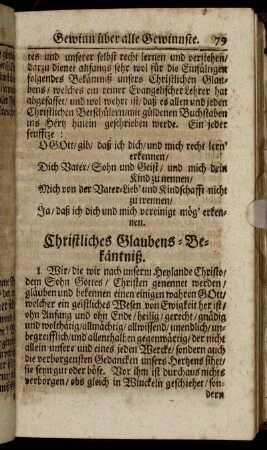 Gewinn über alle Gewinnste. 79
tes und unserer selbst recht lernen und verstehen/
darzu dienet anfangs sehr wol für die Einfältigen
folgendes Bekäntniß unsers Christlichen Glau-
bens/ welches ein reiner Evangelischer Lehrer hat
abgefasset/ und wol wehrt ist/ daß es allen und jeden
Christlichen Betschülern/ mit güldenen Buchstaben
ins Hertz hinein geschrieben werde. Ein jeder
seufftze:
O GOtt/ gib/ daß ich dich/ und mich recht lern'
erkennen/
Dich Vater/ Sohn und Geist/ und mich dein
Kind zu nennen/
Mich von der Vater-Lieb' und Kindschafft nicht
zu trennen/
Ja/ daß ich dich und mich vereinigt mög' erken-
nen.
Christliches Glaubens-Be-
käntniß.
1. Wir/ die wir nach unserm Heylande Christo/
dem Sohn Gottes/ Christen genennet werden/
gläuben und bekennen einen einigen wahren GOtt/
welcher ein geistliches Wesen von Ewigkeit her ist/
ohn Anfang und ohn Ende/ heilig/ gerecht/ gnädig
und wolthätig/ allmächtig/ allwissend/ unendlich/ un-
begreifflich/ und allenthalben gegenwärtig/ der nicht
allein unsere und eines jeden Wercke/ sondern auch
die verborgensten Gedancken unsers Hertzens sihet/
sie seyn gut oder böse. Vor ihm ist durchaus nichts
verborgen/ obs gleich in Winckeln geschiehet/ son-
dern